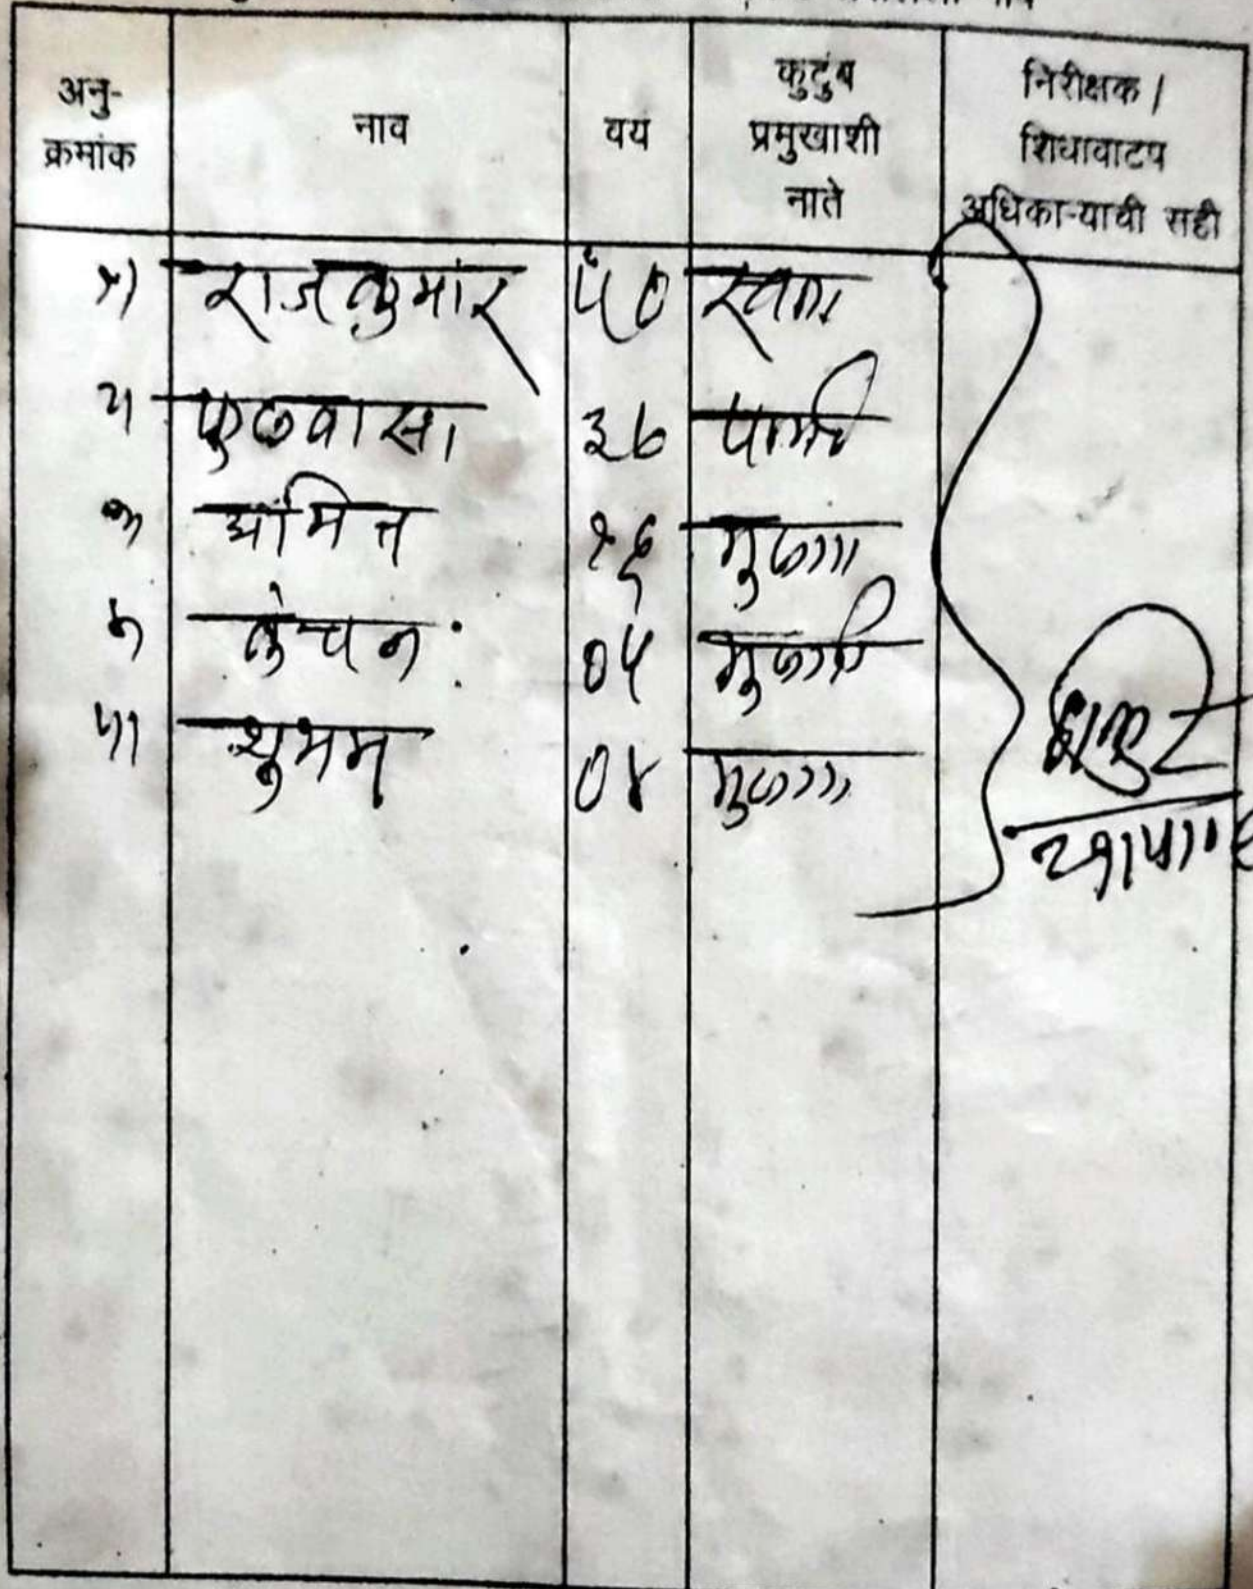 अनु-
क्रमांक
नाव
वय
कुटुंब
प्रमुखाशी
नाते
निरीक्षक /
शिधावाटप
अधिका-याची सही
१) राजकुमार ५० स्वतः
२) फुलवासी ३७ पत्नी
३) अमित १६ मुलगा
४) कंचन ०५ मुलगी
५) शुभम ०४ मुलगा